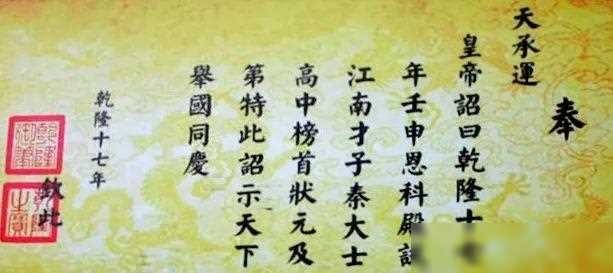 奉
天承運
皇帝詔曰乾隆十
年壬申恩科殿試
江南才子秦大士
高中榜首狀元及
第特此詔示天下
舉國同慶
乾隆十七年
欽此